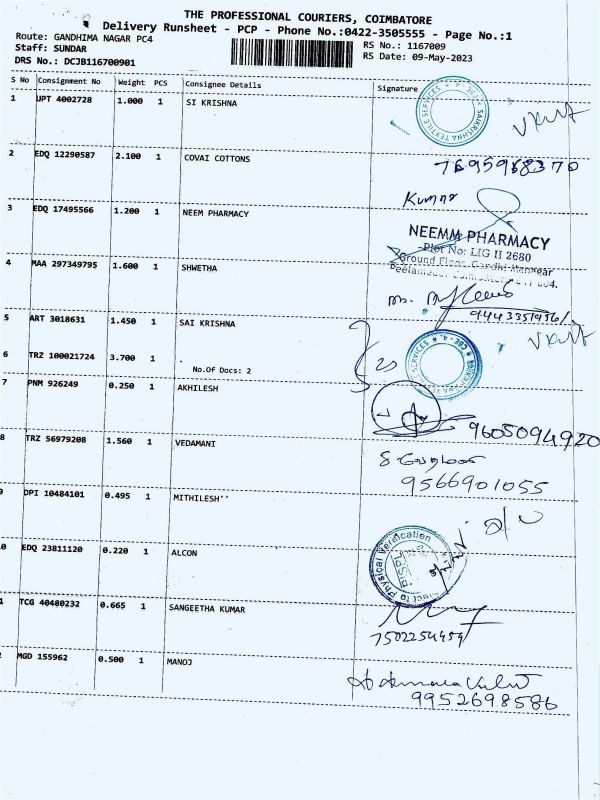 THE PROFESSIONAL COURIERS, COIMBATORE
Delivery Runsheet - PCP - Phone No.:0422-3505555 - Page No.:1
Route: GANDHIMA NAGAR PC4
RS No.: 1167009
Staff: SUNDAR
RS Date: 09-May-2023
DRS No.: DCJB116700901
S No Consignment No Weight PCS Consignee Details Signature
1 UPT 4002728 1.000 1 SI KRISHNA
SAIKRISHNA TEXTILE SERVICES
2 EDQ 12290587 2.100 1 COVAI COTTONS
7695968370
Kumar
3 EDQ 17495566 1.200 1 NEEM PHARMACY
NEEMM PHARMACY
Plot No: LIG II 2680
Ground Floor, Gandhi Managar
4 MAA 297349795 1.600 1 SHWETHA
9443351956
5 ART 3018631 1.450 1 SAI KRISHNA
6 TRZ 100021724 3.700 1 .
No.Of Docs: 2
7 PNM 926249 0.250 1 AKHILESH
9605094920
8 TRZ 56979208 1.560 1 VEDAMANI
9566901055
9 DPI 10484101 0.495 1 MITHILESH''
0 EDQ 23811120 0.220 1 ALCON
1 TCG 40480232 0.665 1 SANGEETHA KUMAR
7502254459
2 MGD 155962 0.500 1 MANOJ
9952698586